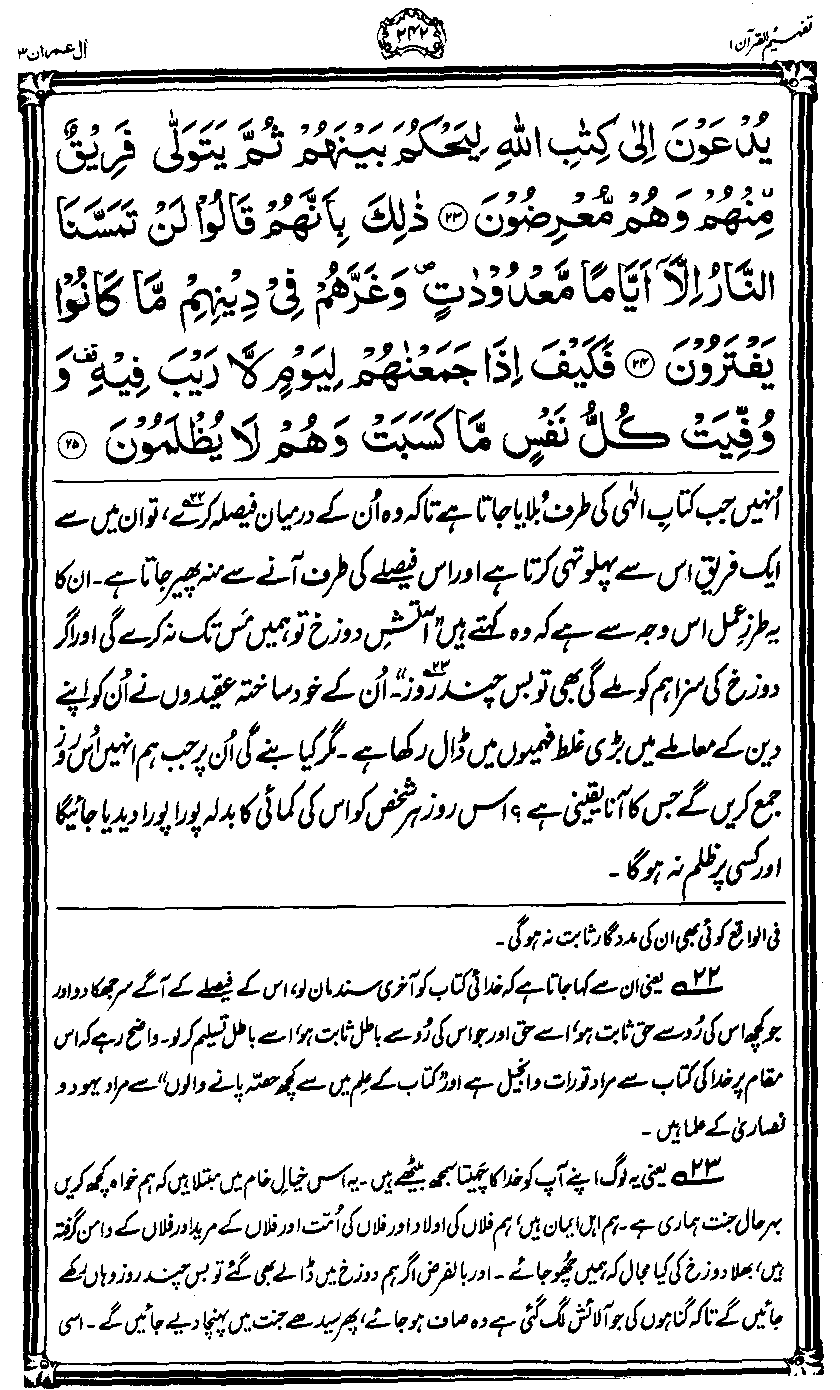 تفہیم القرآن ۱
۲۴۲
اٰل عمران ۳
يُدْعَوْنَ اِلٰى كِتٰبِ اللّٰهِ لِيَحْكُمَ بَيْنَهُمْ ثُمَّ يَتَوَلّٰى فَرِيْقٌ
مِّنْهُمْ وَهُمْ مُّعْرِضُوْنَ ﴿۲۳﴾ ذٰلِكَ بِاَنَّهُمْ قَالُوْا لَنْ تَمَسَّنَا
النَّارُ اِلَّاۤ اَيَّامًا مَّعْدُوْدٰتٍ ۪ وَغَرَّهُمْ فِيْ دِيْنِهِمْ مَّا كَانُوْا
يَفْتَرُوْنَ ﴿۲۴﴾ فَكَيْفَ اِذَا جَمَعْنٰهُمْ لِيَوْمٍ لَّا رَيْبَ فِيْهِ ۟ وَ
وُفِّيَتْ كُلُّ نَفْسٍ مَّا كَسَبَتْ وَهُمْ لَا يُظْلَمُوْنَ ﴿۲۵﴾
اُنہیں جب کتابِ الٰہی کی طرف بُلایا جاتا ہے تاکہ وہ اُن کے درمیان فیصلہ کرے۲۲، تو ان میں سے
ایک فریق اس سے پہلو تہی کرتا ہے اور اس فیصلے کی طرف آنے سے منہ پھیر جاتا ہے۔ ان کا
یہ طرزِ عمل اس وجہ سے ہے کہ وہ کہتے ہیں ”آتشِ دوزخ تو ہمیں مَس تک نہ کرے گی اور اگر
دوزخ کی سزا ہم کو ملے گی بھی تو بس چند روز۲۳“۔ اُن کے خود ساختہ عقیدوں نے اُن کو اپنے
دین کے معاملے میں بڑی غلط فہمیوں میں ڈال رکھا ہے۔ مگر کیا بنے گی اُن پر جب ہم انہیں اُس روز
جمع کریں گے جس کا آنا یقینی ہے؟ اس روز ہر شخص کو اس کی کمائی کا بدلہ پورا پورا دیدیا جائیگا
اور کسی پر ظلم نہ ہوگا۔
فی الواقع کوئی بھی ان کی مددگار ثابت نہ ہوگی۔
۲۲ یعنی ان سے کہا جاتا ہے کہ خدا کی کتاب کو آخری سند مان لو، اس کے فیصلے کے آگے سر جھکا دو اور
جو کچھ اس کی رُو سے حق ثابت ہو، اسے حق اور جو اس کی رُو سے باطل ثابت ہو، اسے باطل تسلیم کر لو۔ واضح رہے کہ اس
مقام پر خدا کی کتاب سے مراد تورات و انجیل ہے اور ”کتاب کے علم میں سے کچھ حصّہ پانے والوں“ سے مراد یہود و
نصاریٰ کے علما ہیں۔
۲۳ یعنی یہ لوگ اپنے آپ کو خدا کا چہیتا سمجھ بیٹھے ہیں۔ یہ اس خیالِ خام میں مبتلا ہیں کہ ہم خواہ کچھ کریں
بہرحال جنت ہماری ہے۔ ہم اہلِ ایمان ہیں، ہم فلاں کی اولاد اور فلاں کی اُمّت اور فلاں کے مرید اور فلاں کے دامن گرفتہ
ہیں، بھلا دوزخ کی کیا مجال کہ ہمیں چھُو جائے۔ اور بالفرض اگر ہم دوزخ میں ڈالے بھی گئے تو بس چند روز وہاں رکھے
جائیں گے تاکہ گناہوں کی جو آلائش لگ گئی ہے وہ صاف ہو جائے، پھر سیدھے جنت میں پہنچا دیے جائیں گے۔ اسی